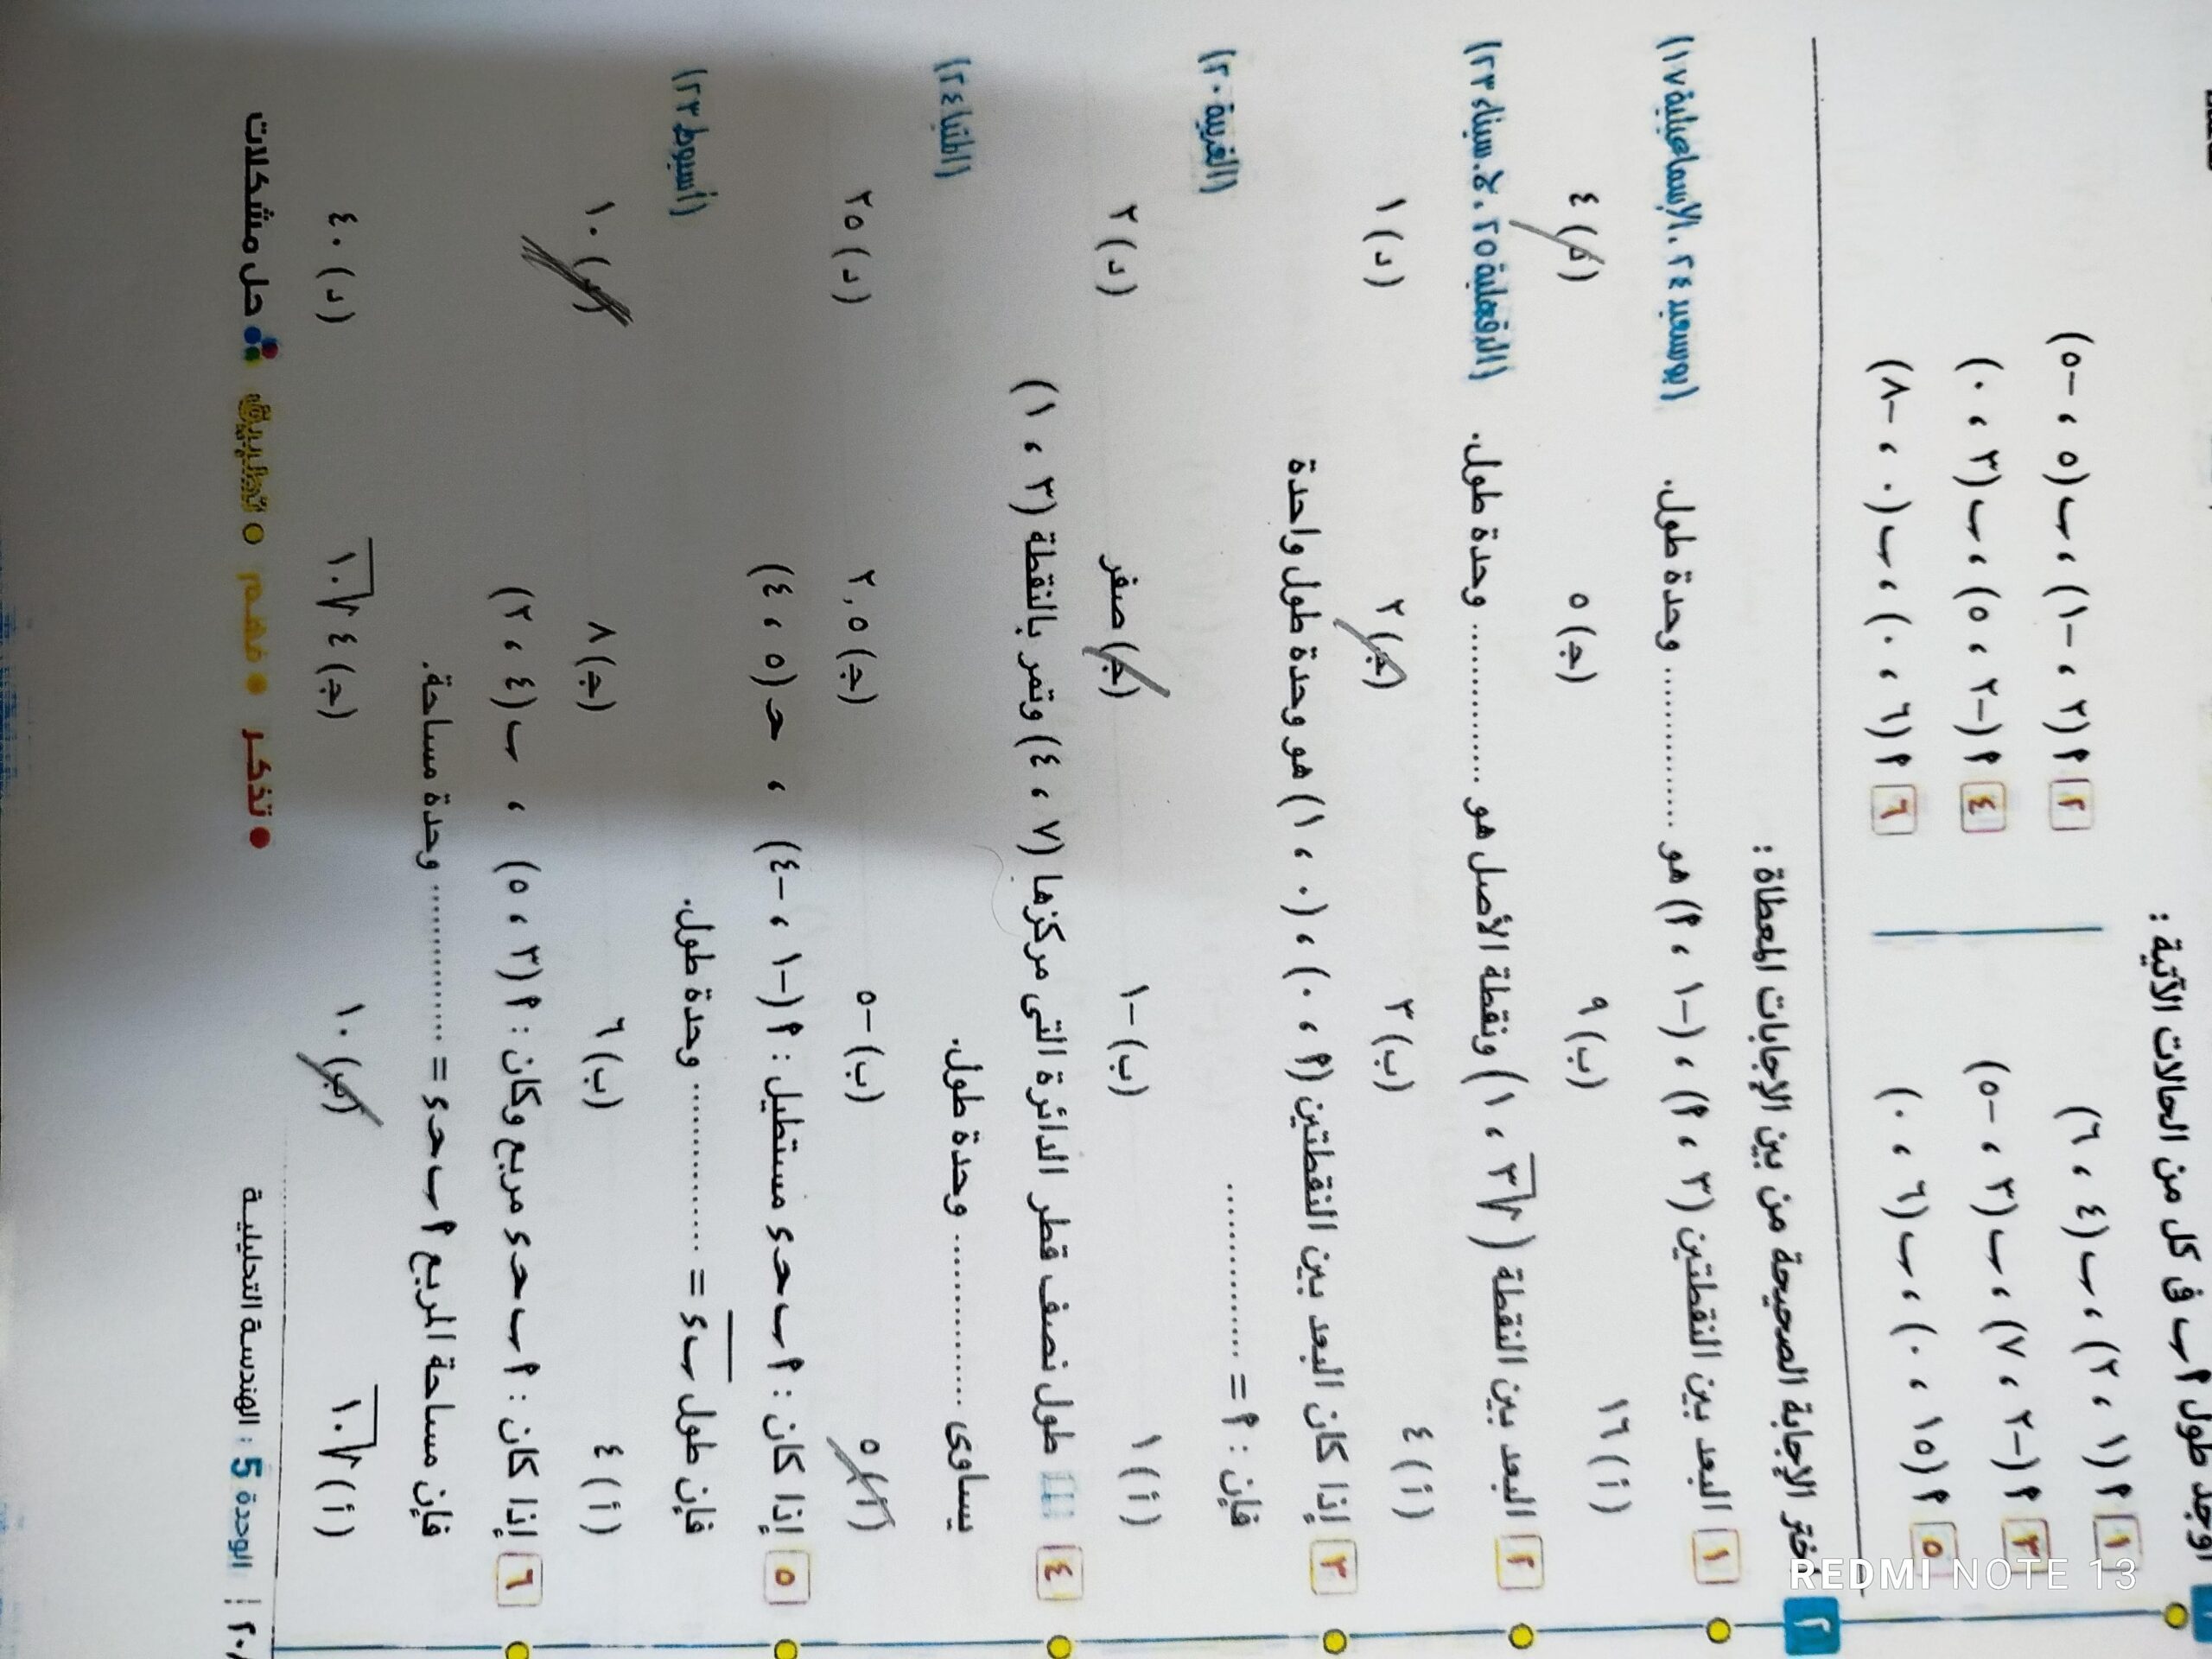 أوجد طول أب فى كل من الحالات الآتية :
١ أ(١ ، ٢) ، ب(٤ ، ٦)
٢ أ(٢ ، -١) ، ب(٥ ، -٥)
٣ أ(-٢ ، ٧) ، ب(٣ ، -٥)
٤ أ(-٢ ، ٥) ، ب(٣ ، ٠)
٥ أ(١٥ ، ٠) ، ب(٦ ، ٠)
٦ أ(٦ ، ٠) ، ب(٠ ، -٨)
٢ اختر الإجابة الصحيحة من بين الإجابات المعطاة :
١ البعد بين النقطتين (٣ ، أ) ، (-١ ، أ) هو .............. وحدة طول. (بورسعيد ٢٤ ، الإسماعيلية ١٧)
(أ) ١٦ (ب) ٩ (ج) ٥ (د) ٤
٢ البعد بين النقطة (√٣ ، ١) ونقطة الأصل هو .............. وحدة طول. (الدقهلية ٢٥ ، ش. سيناء ٢٣)
(أ) ٤ (ب) ٣ (ج) ٢ (د) ١
٣ إذا كان البعد بين النقطتين (أ ، ٠) ، (٠ ، ١) هو وحدة طول واحدة
فإن : أ = .............. (الغربية ٢٠)
(أ) ١ (ب) -١ (ج) صفر (د) ٢
٤ طول نصف قطر الدائرة التى مركزها (٧ ، ٤) وتمر بالنقطة (٣ ، ١)
يساوى .............. وحدة طول. (المنيا ٢٤)
(أ) ٥ (ب) -٥ (ج) ٢,٥ (د) ٢٥
٥ إذا كان : أ ب حـ د مستطيل : أ(-١ ، -٤) ، حـ(٥ ، ٤)
فإن طول ب د = .............. وحدة طول. (أسيوط ٢٣)
(أ) ٤ (ب) ٦ (ج) ٨ (د) ١٠
٦ إذا كان : أ ب حـ د مربع وكان : أ(٣ ، ٥) ، ب(٤ ، ٢)
فإن مساحة المربع أ ب حـ د = .............. وحدة مساحة.
(أ) √١٠ (ب) ١٠ (ج) ٤√١٠ (د) ٤٠
الوحدة 5 : الهندسة التحليلية
● تذكر ● فهم ○ تطبيق حل مشكلات
REDMI NOTE 13